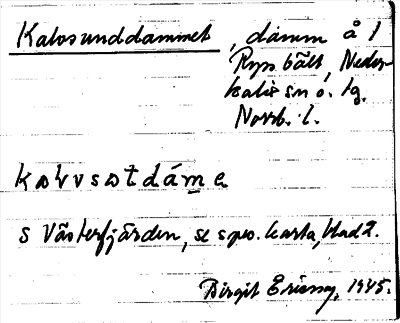 Kalvsunddammet, damm å 1
Ryssbält, Neder-
kalix sn o. tg.
Norrb. l.
kalvsøtdáme
s Västerfjärden, se spec. karta, blad 2.
Birgit Ericson, 1945.